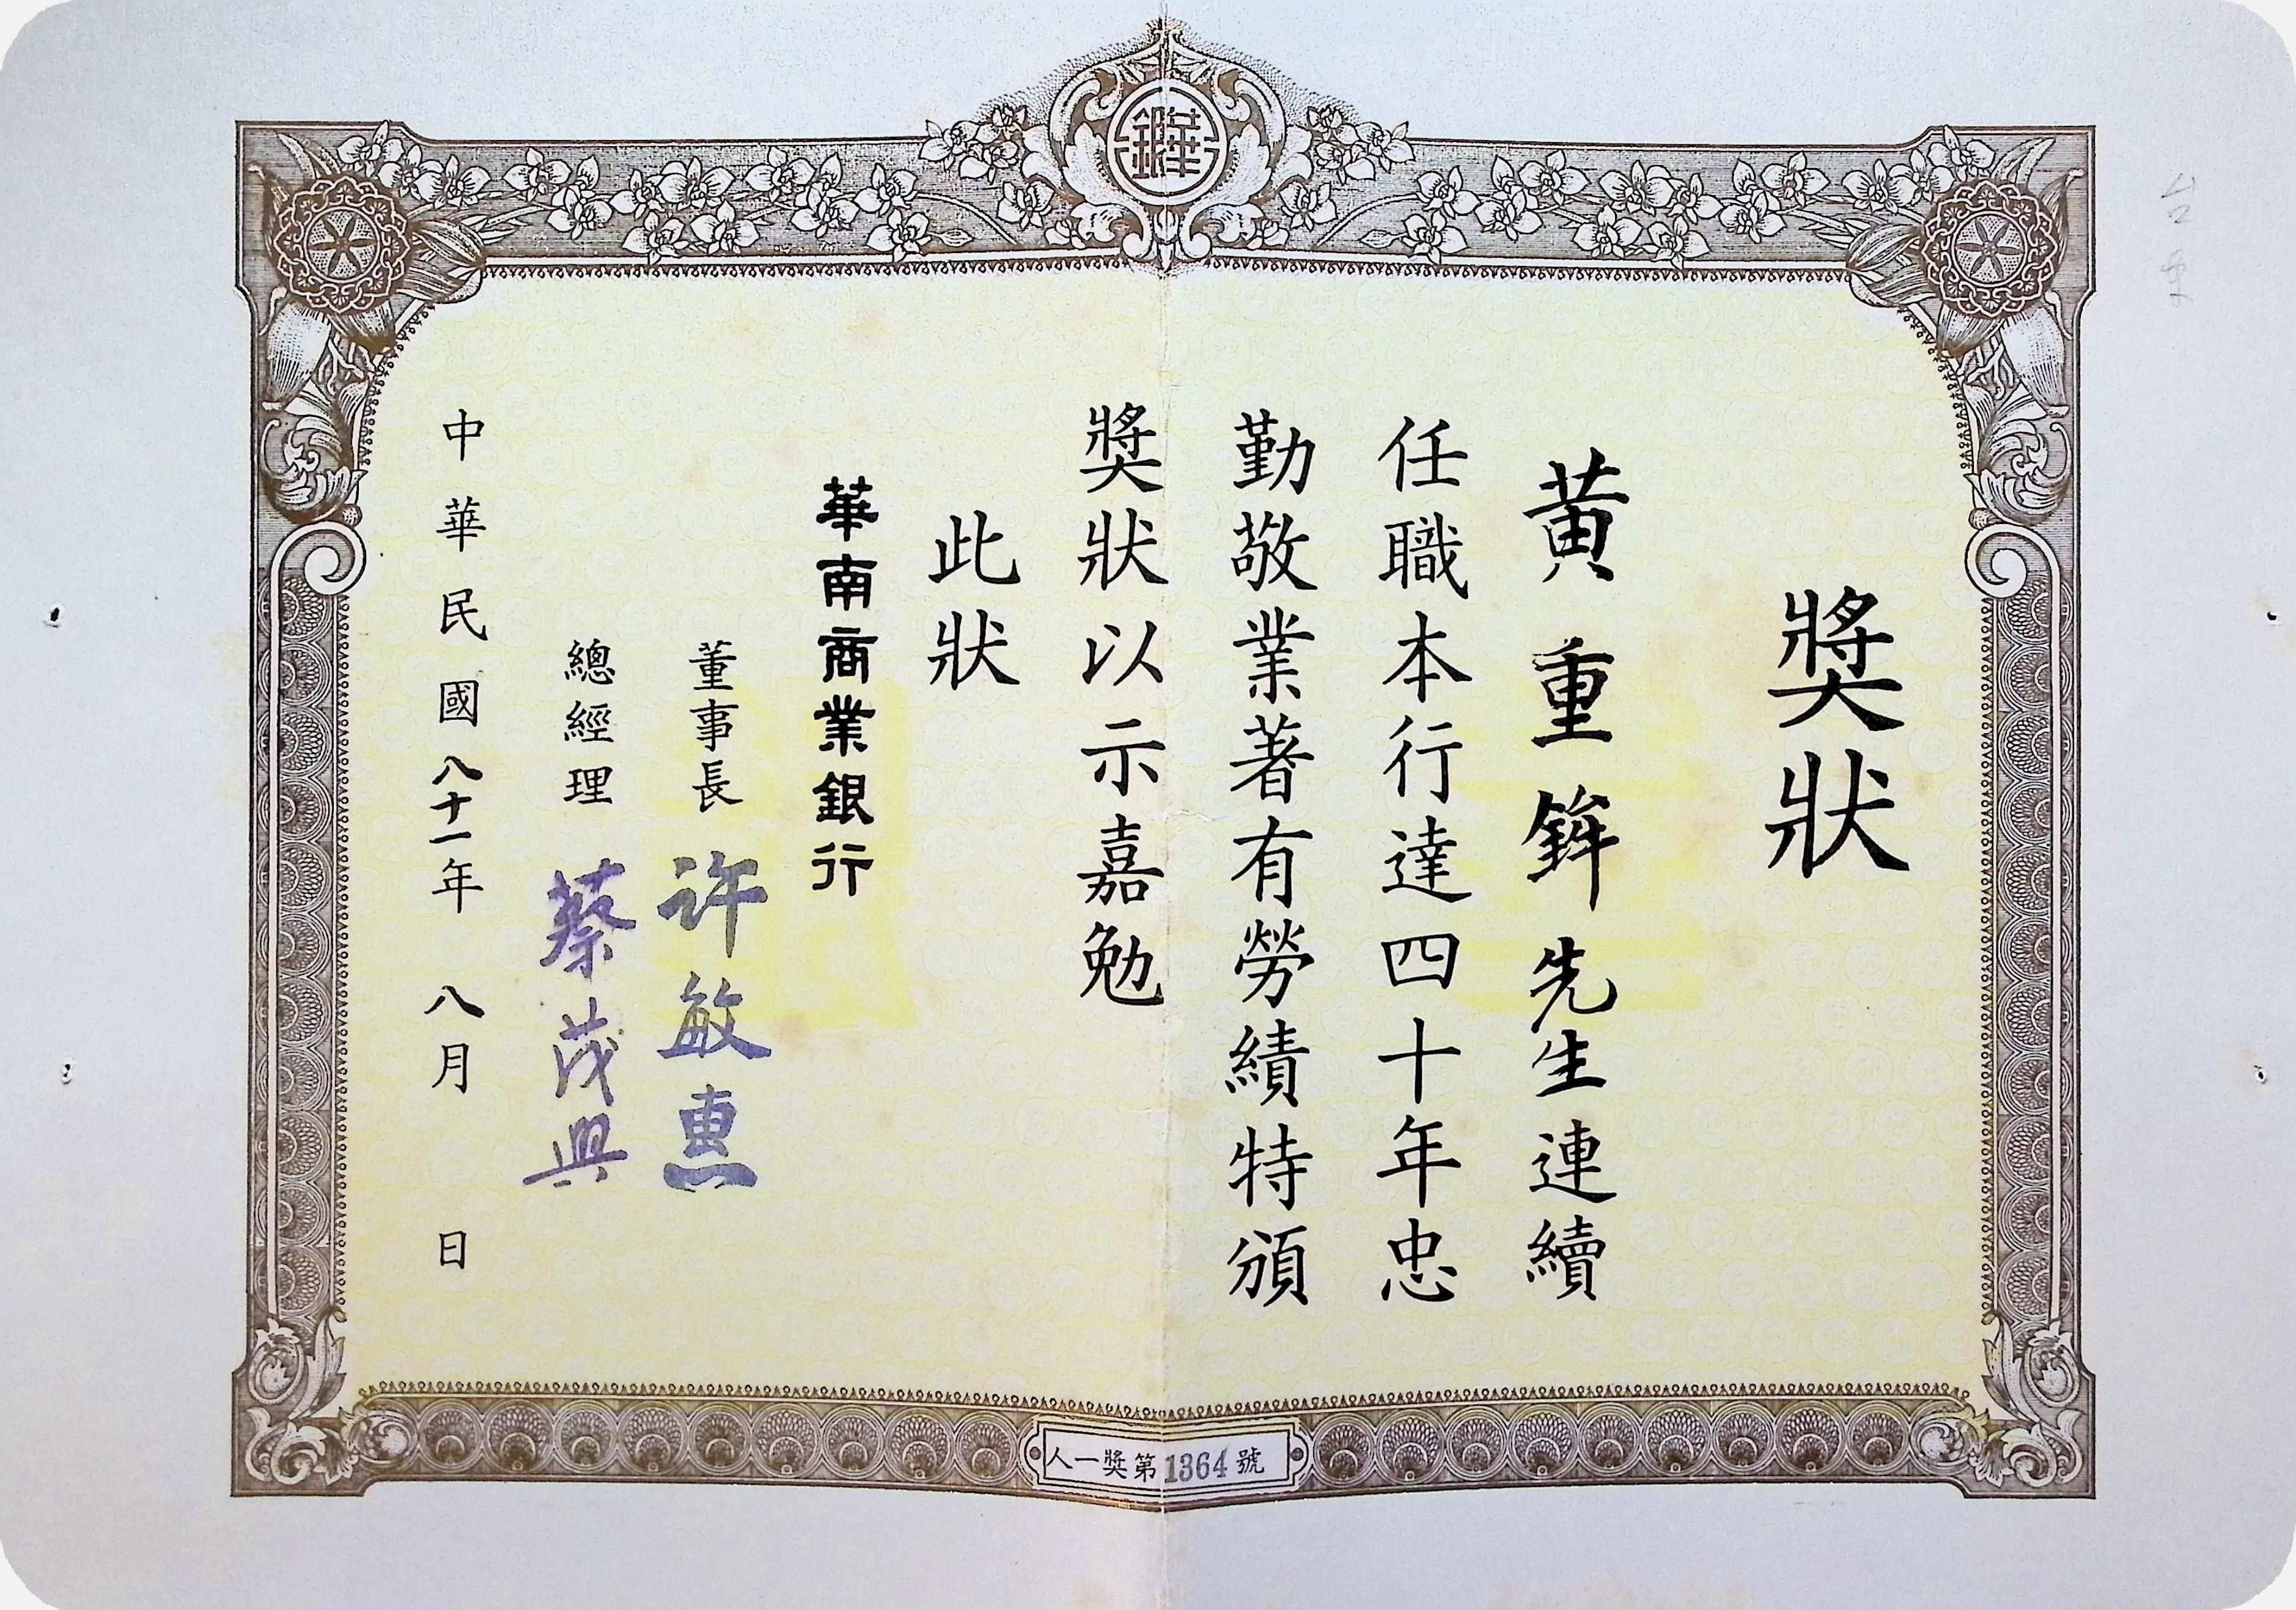 獎狀
黃重鉾先生連續
任職本行達四十年忠
勤敬業著有勞績特頒
獎狀以示嘉勉
此狀
華南商業銀行
董事長 許敏惠
總經理 蔡茂興
中華民國八十一年 八月 日
人一獎第1364號
華銀